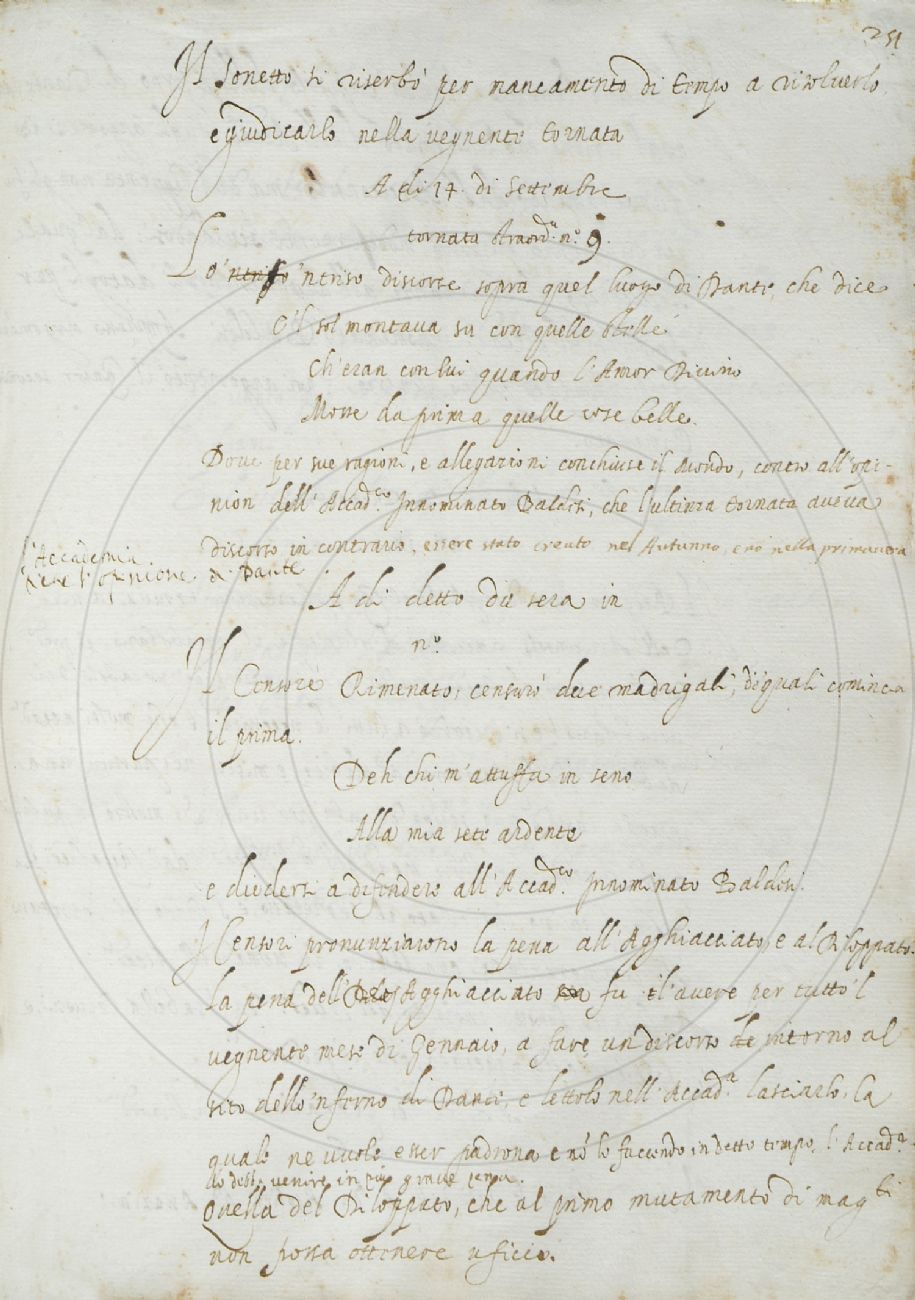 251
Il sonetto si riserbò per mancamento di tempo a risolverlo,
e giudicarlo nella vegnente tornata
A di 14. di Settembre
tornata straord.ª nº. 9.
Lo 'ntriso 'ntriso discorse sopra quel luogo di Dante, che dice
E'l sol montava su con quelle stelle
Ch'eran con lui quando l'Amor Divino
Mosse da prima quelle cose belle.
Dove per sue ragioni, e allegazioni conchiuse il Mondo, contro all'opi-
nion dell'Accad.co Innominato Baldesi, che l'ultima tornata aveva
discorso in contrario, essere stato creato nel Autunno, e nò nella primavera
l'Accademia
tiene l'opinione
di Dante
A di detto da sera in
nº.
Il Censore Rimenato, censurò due madrigali, di quali comincia
il prima.
Deh chi m'attuffa in seno
Alla mia sete ardente
e diedersi a difendere all'Accad.co Innominato Baldesi.
I Censori pronunziarono la pena all'Agghiacciato, e al Riloppato.
la pena dell' Agghiacciato fu il avere per tutto 'l
vegnente mese di Gennaio, a fare un discorso de intorno al
sito dello 'nferno di Dante, e lettolo nell'Accad.ª lasciarlo, la
quale ne vuole esser padrona e nò lo faccendo in detto tempo, l'Accad.ª
lo debbe venire in più grave pena.
Quella del Riloppato, che al primo mutamento di mag.ti
non possa ottenere uficio.